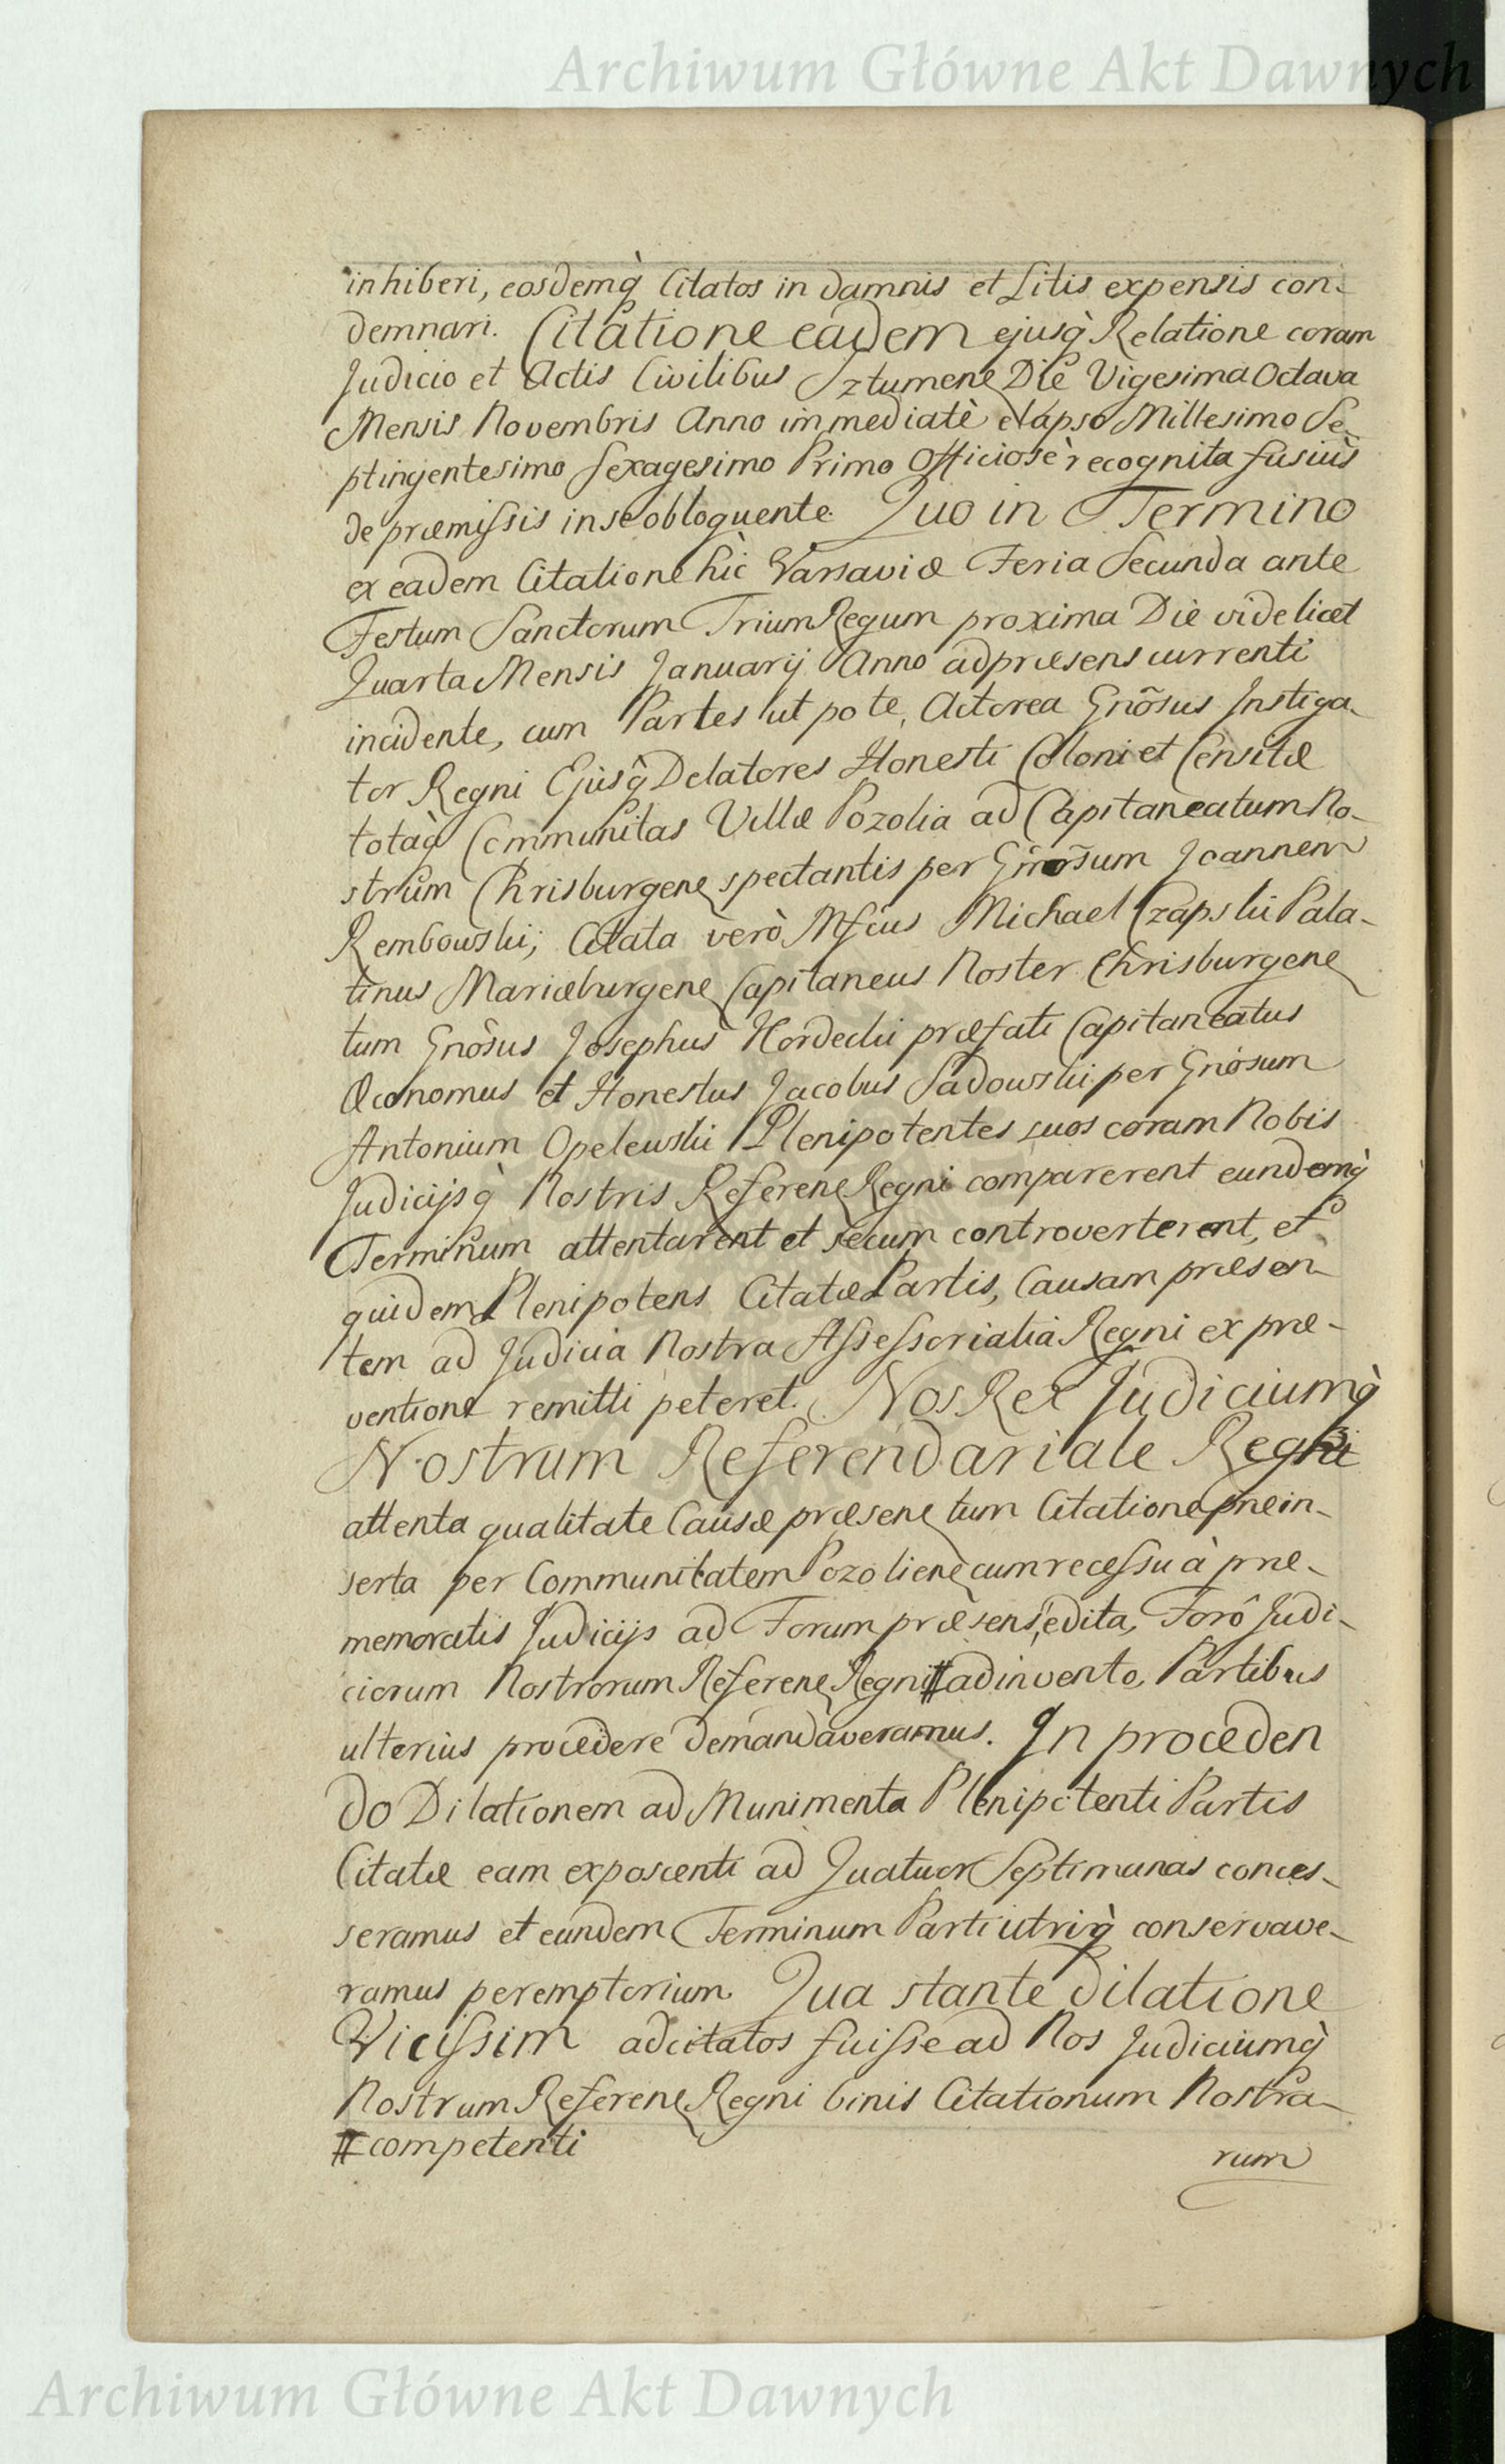 Archiwum Główne Akt Dawnych
inhiberi, eosdemq̀ Citatos in damnis et Litis expensis con-
demnari. Citatione eadem ejusq̀ Relatione coram
Judicio et Actis Civilibus Sztumene Die Vigesima Octava
Mensis Novembris Anno immediatè elapso Millesimo Se-
ptingentesimo Sexagesimo Primo Officiosè recognita fusiùs
de præmissis in se obloquente. Quo in Termino
ex eadem Citatione hìc Varsaviæ Feria Secunda ante
Festum Sanctorum Trium Regum proxima Die videlicet
Quarta Mensis Januarij Anno ad præsens currenti
incidente, cum Partes utpote, Actorea Gnõsus Instiga-
tor Regni Ejusq̀ Delatores Honesti Coloni et Censitæ
totaq̀ Communitas Villæ Pozolia ad Capitaneatum No-
strum Chrisburgene spectantis per Gnõsum Joannem
Rembowski; Citata verò Mfcus Michael Czapski Pala-
tinus Mariæburgene Capitaneus Noster Chrisburgene
tum Gnõsus Josephus Hordecki præfati Capitaneatus
Œconomus et Honestus Jacobus Sadowski per Gnõsum
Antonium Opelewski Plenipotentes suos coram Nobis
Judicijsq̀ Nostris Referene Regni comparerent eundemq̀
Terminum attentarent et secum controverterent, et
quidem Plenipotens Citatæ Partis, Causam præsen-
tem ad Judicia Nostra Assessorialia Regni ex præ-
ventione remitti peteret. Nos Rex Judiciumq̀
Nostrum Referendariale Regni
attenta qualitate Causæ præsene tum Citatione præin-
serta per Communitatem Pozoliene cum recessu à præ-
memoratis Judicijs ad Forum præsens, edita, Forô Judi-
ciorum Nostrorum Referene Regni # adinvento, Partibus
ulterius procedere demandaveramus. In proceden
do Dilationem ad Munimenta Plenipotenti Partis
Citatæ eam exposcenti ad Quatuor Septimanas conces-
seramus et eundem Terminum Parti utriq̀ conservave-
ramus peremptorium. Qua stante dilatione
Vicissim adcitatos fuisse ad Nos Judiciumq̀
Nostrum Referene Regni binis Citationum Nostra-
# competenti
rum
Archiwum Główne Akt Dawnych